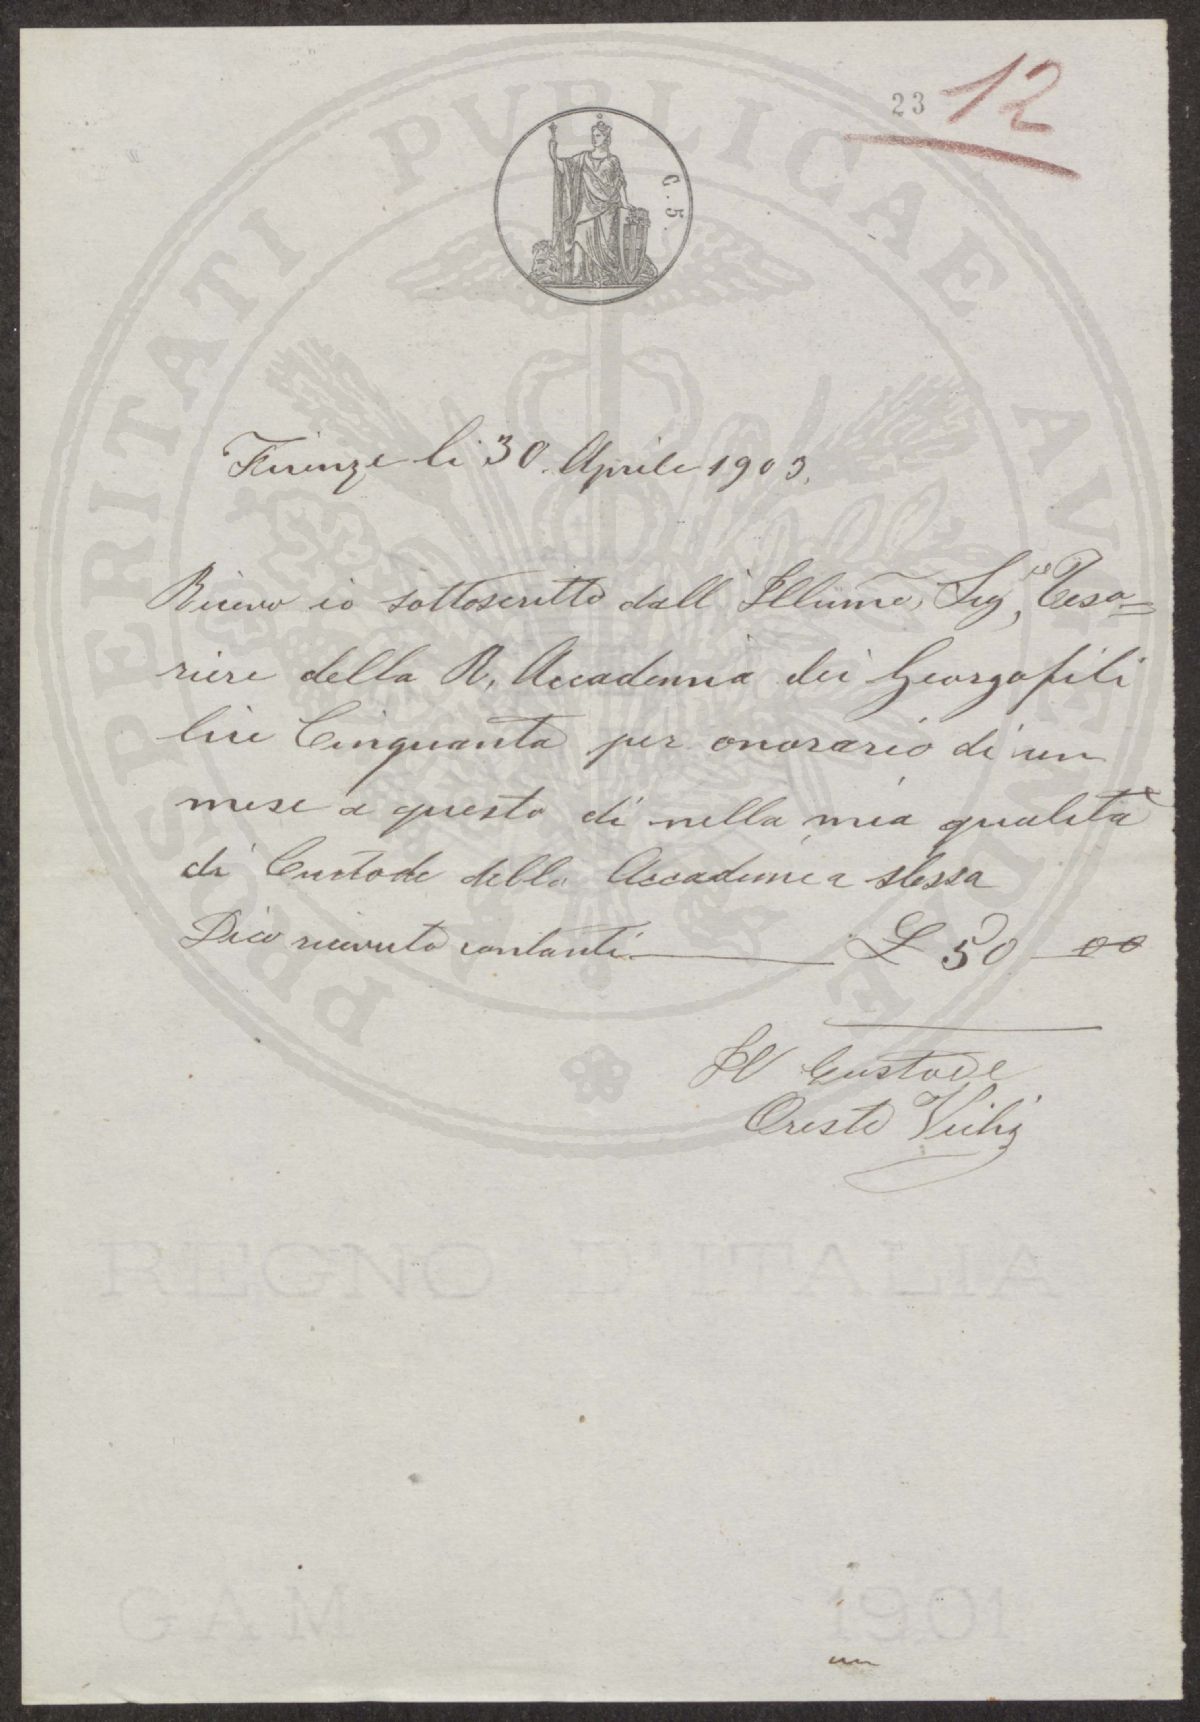 23 12
C. 5.
PROSPERITATI PUBLICAE AUGENDAE
Firenze li 30. Aprile 1903.
Ricevo io sottoscritto dall' Illumo, Sigre, Teso=
riere della R. Accademia dei Georgofili
lire Cinquanta per onorario di un
mese a questo dì nella mia qualità
di Custode della Accademia stessa
Dico ricevuto contanti L 50 00
Il Custode
Oreste
REGNO D'ITALIA
GAM 1901